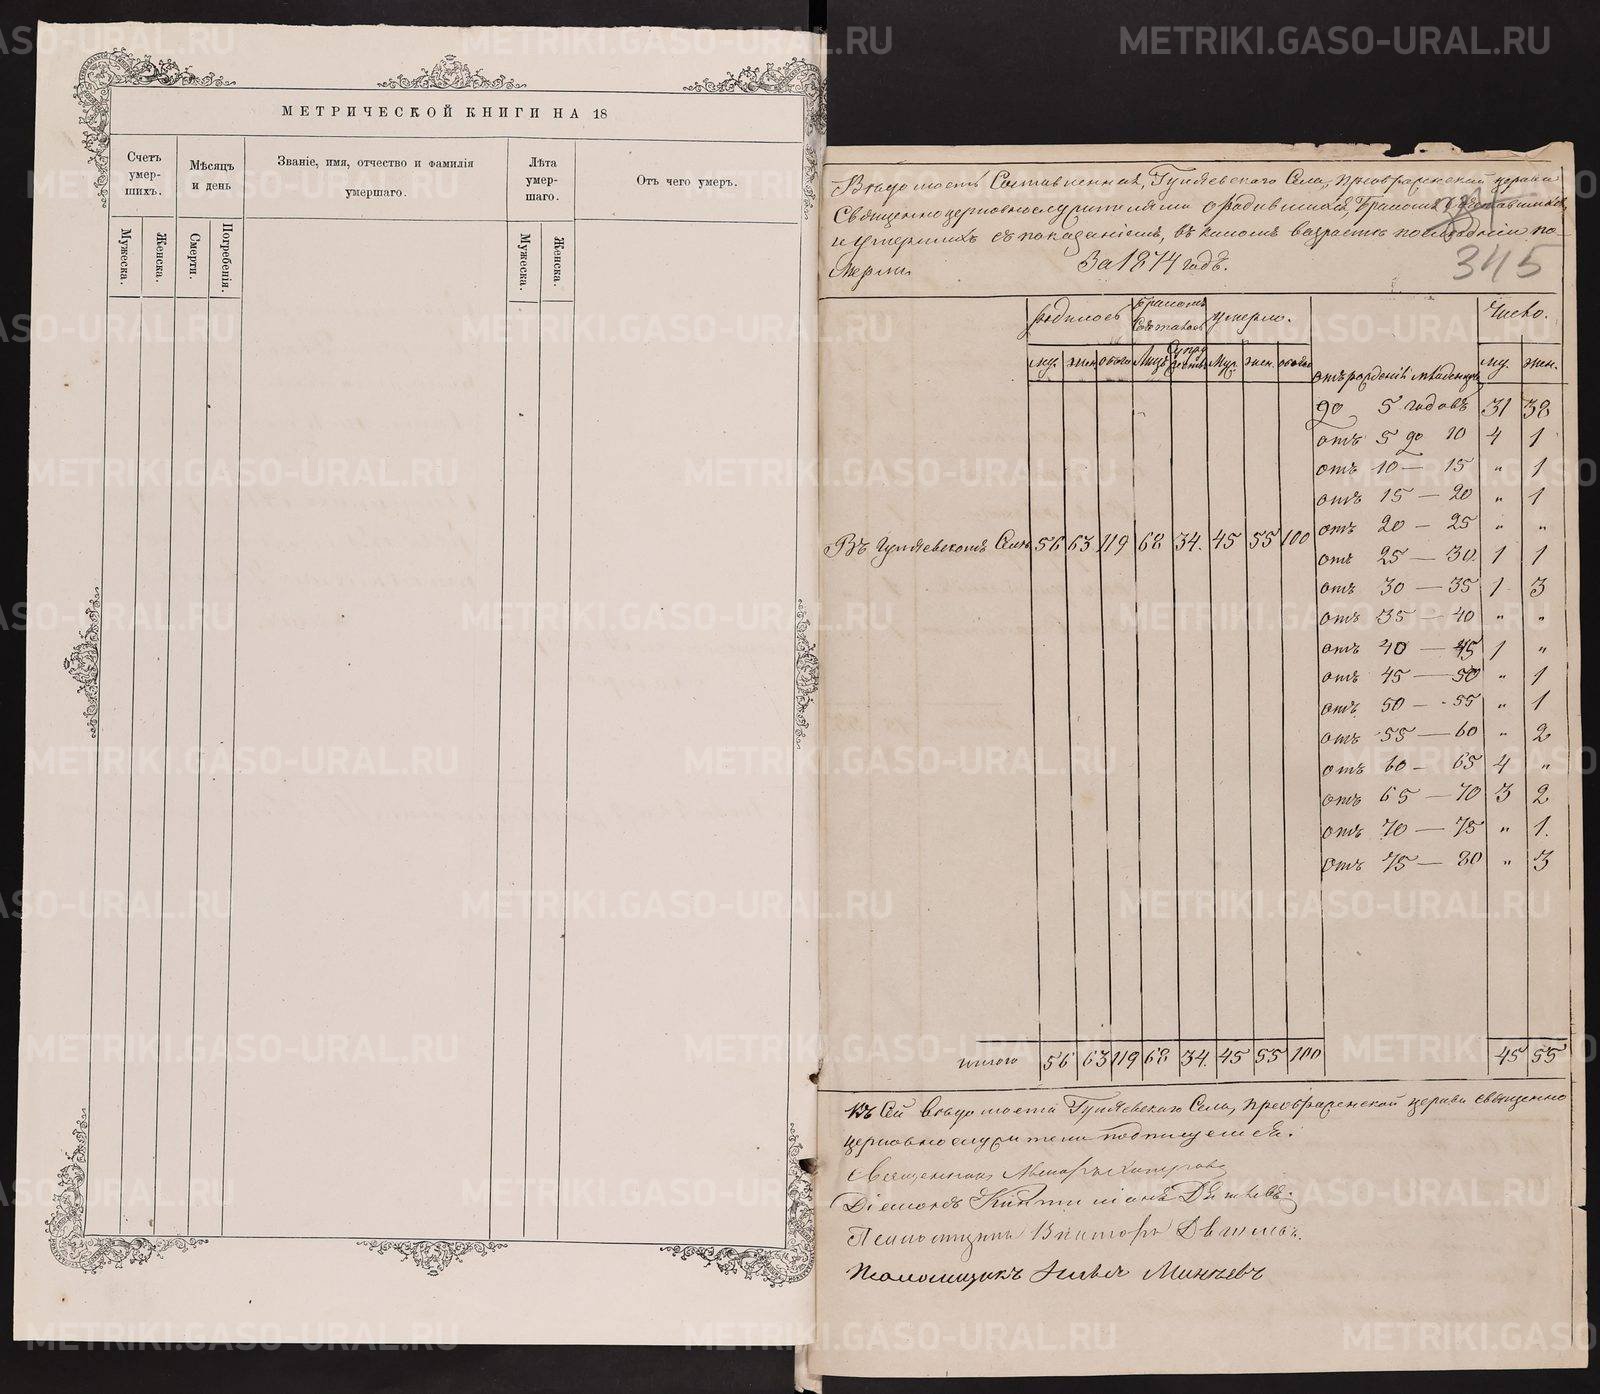 МЕТРИЧЕСКОЙ КНИГИ НА 18
Счетъ умер-шихъ.
Мѣсяцъ и день
Званіе, имя, отчество и фамилія умершаго.
Лѣта умер-шаго.
Отъ чего умеръ.
Мужеска.
Женска.
Смерти.
Погребенія.
Мужеска.
Женска.
Вѣдомость Составленная, Гуляевскаго Села, Преображенской церкви
Священноцерковнослужителями о родившихся, бракомъ сочетавшихся
и умершихъ съ показаніемъ, въ какомъ возрастѣ последніи по-
мерли За 1874 годъ.
345
родилось бракомъ умерло. Число.
му. жен. обоего Лицъ Муж. жен. обоего му. жен.
отъ рожденія младенцевъ
до 5 годовъ 31 38
отъ 5 до 10 4 1
отъ 10 — 15 " 1
отъ 15 — 20 " 1
отъ 20 — 25 " "
Въ Гуляевскомъ Селѣ 56 63 119 68 34. 45 55 100
отъ 25 — 30. 1 1
отъ 30 — 35 1 3
отъ 35 — 40 " "
отъ 40 — 45 1 "
отъ 45 — 50 " 1
отъ 50 — 55 " 1
отъ 55 — 60 " 2
отъ 60 — 65 4 "
отъ 65 — 70 3 2
отъ 70 — 75 " 1.
отъ 75 — 80 " 3
итого 56 63 119 68 34. 45 55 100 45 55
Къ Сей Вѣдомости Гуляевскаго Села, преображенской церкви священно
церковнослужители подписуемся:
Священникъ
Діаконъ
Псаломщикъ Викторъ
Псаломщикъ Илья Минѣевъ
METRIKI.GASO-URAL.RU